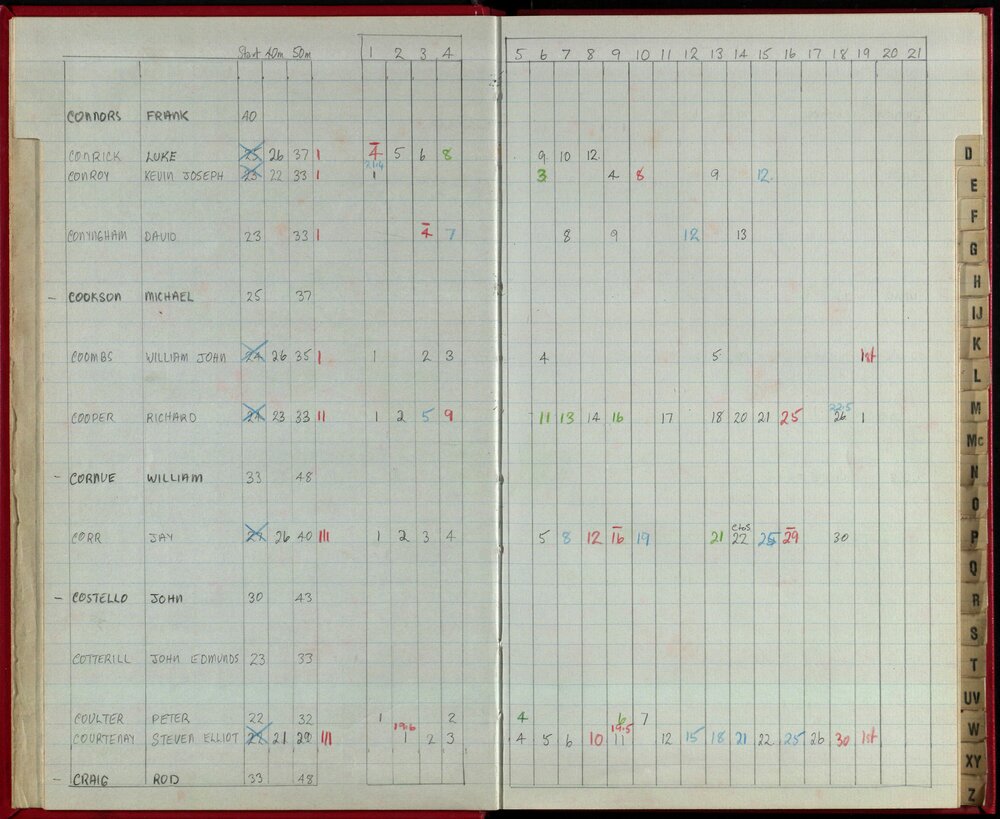 Start 40m 50m 1 2 3 4 5 6 7 8 9 10 11 12 13 14 15 16 17 18 19 20 21
CONNORS FRANK 40
CONRICK LUKE 25 26 37 I 4 5 6 8 9 10 12
21.4
CONROY KEVIN JOSEPH 23 22 33 I 1 3 4 8 9 12
CONYNGHAM DAVID 23 33 I 4 7 8 9 12 13
- COOKSON MICHAEL 25 37
COOMBS WILLIAM JOHN 24 26 35 I 1 2 3 4 5 1st
22.5
COOPER RICHARD 23 33 II 1 2 5 9 11 13 14 16 17 18 20 21 25 26 1
- CORNUE WILLIAM 33 48
CTOS
CORR JAY 26 40 III 1 2 3 4 5 8 12 16 19 21 22 25 29 30
- COSTELLO JOHN 30 43
COTTERILL JOHN EDMUNDS 23 33
COULTER PETER 22 32 1 2 4 6 7
19.6 19.5
COURTENAY STEVEN ELLIOT 21 29 III 1 2 3 4 5 6 10 11 12 15 18 21 22 25 26 30 1st
- CRAIG ROD 33 48
D
E
F
G
H
IJ
K
L
M
Mc
N
O
P
Q
R
S
T
UV
W
XY
Z